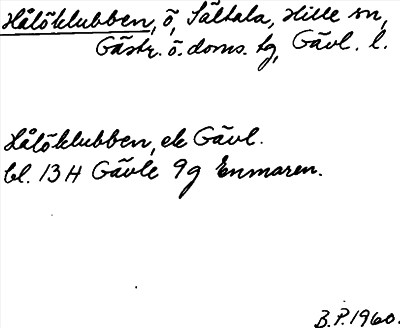 Hålöklubben, ö, Sältala, Hille sn,
Gästr. ö. doms. tg, Gävl. l.
Hålöklubben, ek Gävl.
bl. 13 H Gävle 9g Enmaren.
B.P. 1960.